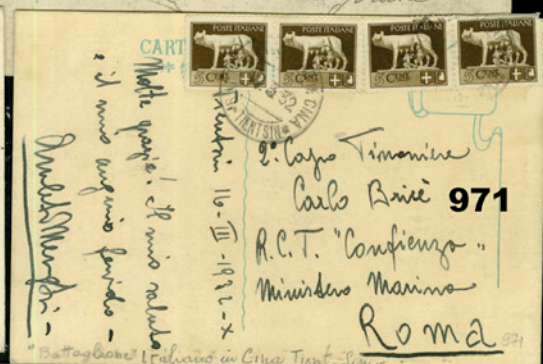 POSTE ITALIANE
POSTE ITALIANE
POSTE ITALIANE
POSTE ITALIANE
5 CENT.
5 CENT.
5 CENT.
5 CENT.
CART
32
TIENTSIN * CINA
Tientsin 16-III-1932-X
Molte grazie! Il mio saluto
e il mio augurio fervido -
2º Capo Timoniere
Carlo Bricè
971
R.C.T. "Confienza"
Ministero Marina
Roma
"Battaglione" Italiano in Cina Tient-Sin
971